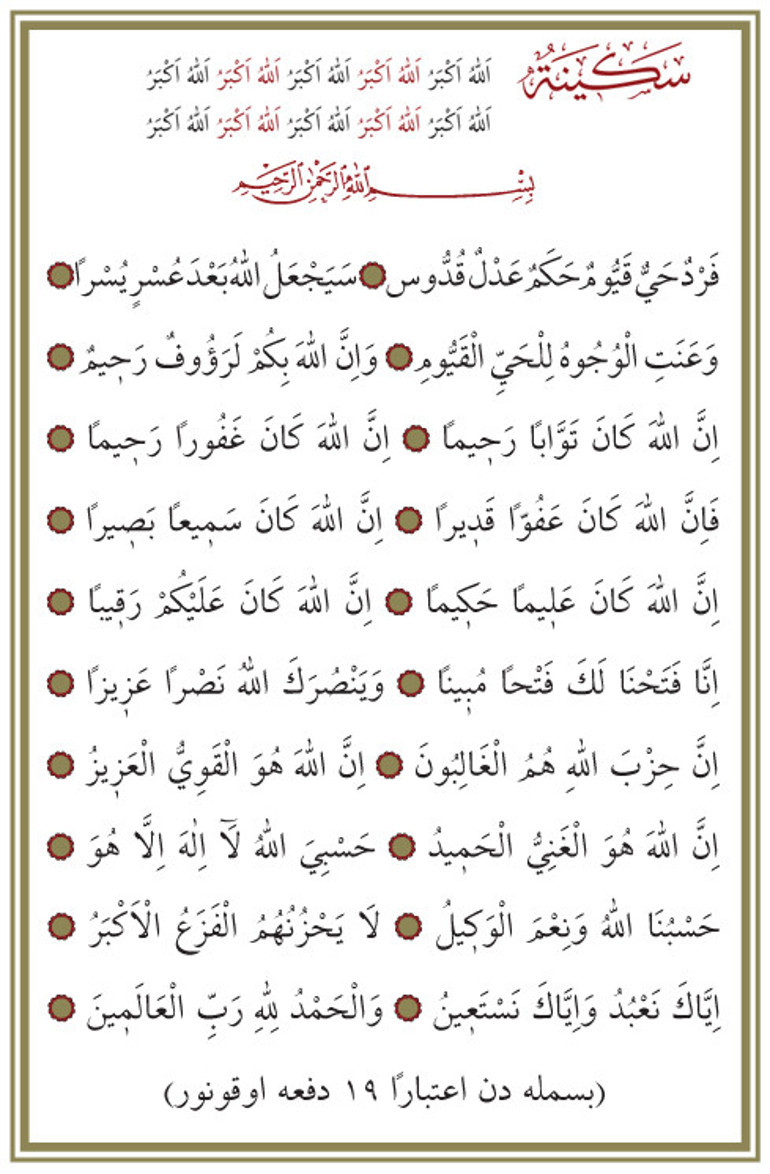 سَكِينَةٌ
اَللهُ اَكْبَرُ اَللهُ اَكْبَرُ اَللهُ اَكْبَرُ اَللهُ اَكْبَرُ اَللهُ اَكْبَرُ
اَللهُ اَكْبَرُ اَللهُ اَكْبَرُ اَللهُ اَكْبَرُ اَللهُ اَكْبَرُ اَللهُ اَكْبَرُ
بِسْمِ اللهِ الرَّحْمٰنِ الرَّحِيمِ
فَرْدٌ حَيٌّ قَيُّومٌ حَكَمٌ عَدْلٌ قُدُّوس سَيَجْعَلُ اللهُ بَعْدَ عُسْرٍ يُسْرًا
وَعَنَتِ الْوُجُوهُ لِلْحَيِّ الْقَيُّومِ وَاِنَّ اللهَ بِكُمْ لَرَؤُوفٌ رَحِيمٌ
اِنَّ اللهَ كَانَ تَوَّابًا رَحِيمًا اِنَّ اللهَ كَانَ غَفُورًا رَحِيمًا
فَاِنَّ اللهَ كَانَ عَفُوًّا قَدِيرًا اِنَّ اللهَ كَانَ سَمِيعًا بَصِيرًا
اِنَّ اللهَ كَانَ عَلِيمًا حَكِيمًا اِنَّ اللهَ كَانَ عَلَيْكُمْ رَقِيبًا
اِنَّا فَتَحْنَا لَكَ فَتْحًا مُبِينًا وَيَنْصُرَكَ اللهُ نَصْرًا عَزِيزًا
اِنَّ حِزْبَ اللهِ هُمُ الْغَالِبُونَ اِنَّ اللهَ هُوَ الْقَوِيُّ الْعَزِيزُ
اِنَّ اللهَ هُوَ الْغَنِيُّ الْحَمِيدُ حَسْبِيَ اللهُ لَآ اِلٰهَ اِلَّا هُوَ
حَسْبُنَا اللهُ وَنِعْمَ الْوَكِيلُ لَا يَحْزُنُهُمُ الْفَزَعُ الْاَكْبَرُ
اِيَّاكَ نَعْبُدُ وَاِيَّاكَ نَسْتَعِينُ وَالْحَمْدُ لِلّٰهِ رَبِّ الْعَالَمِينَ
(بسمله دن اعتبارًا ١٩ دفعه اوقونور)